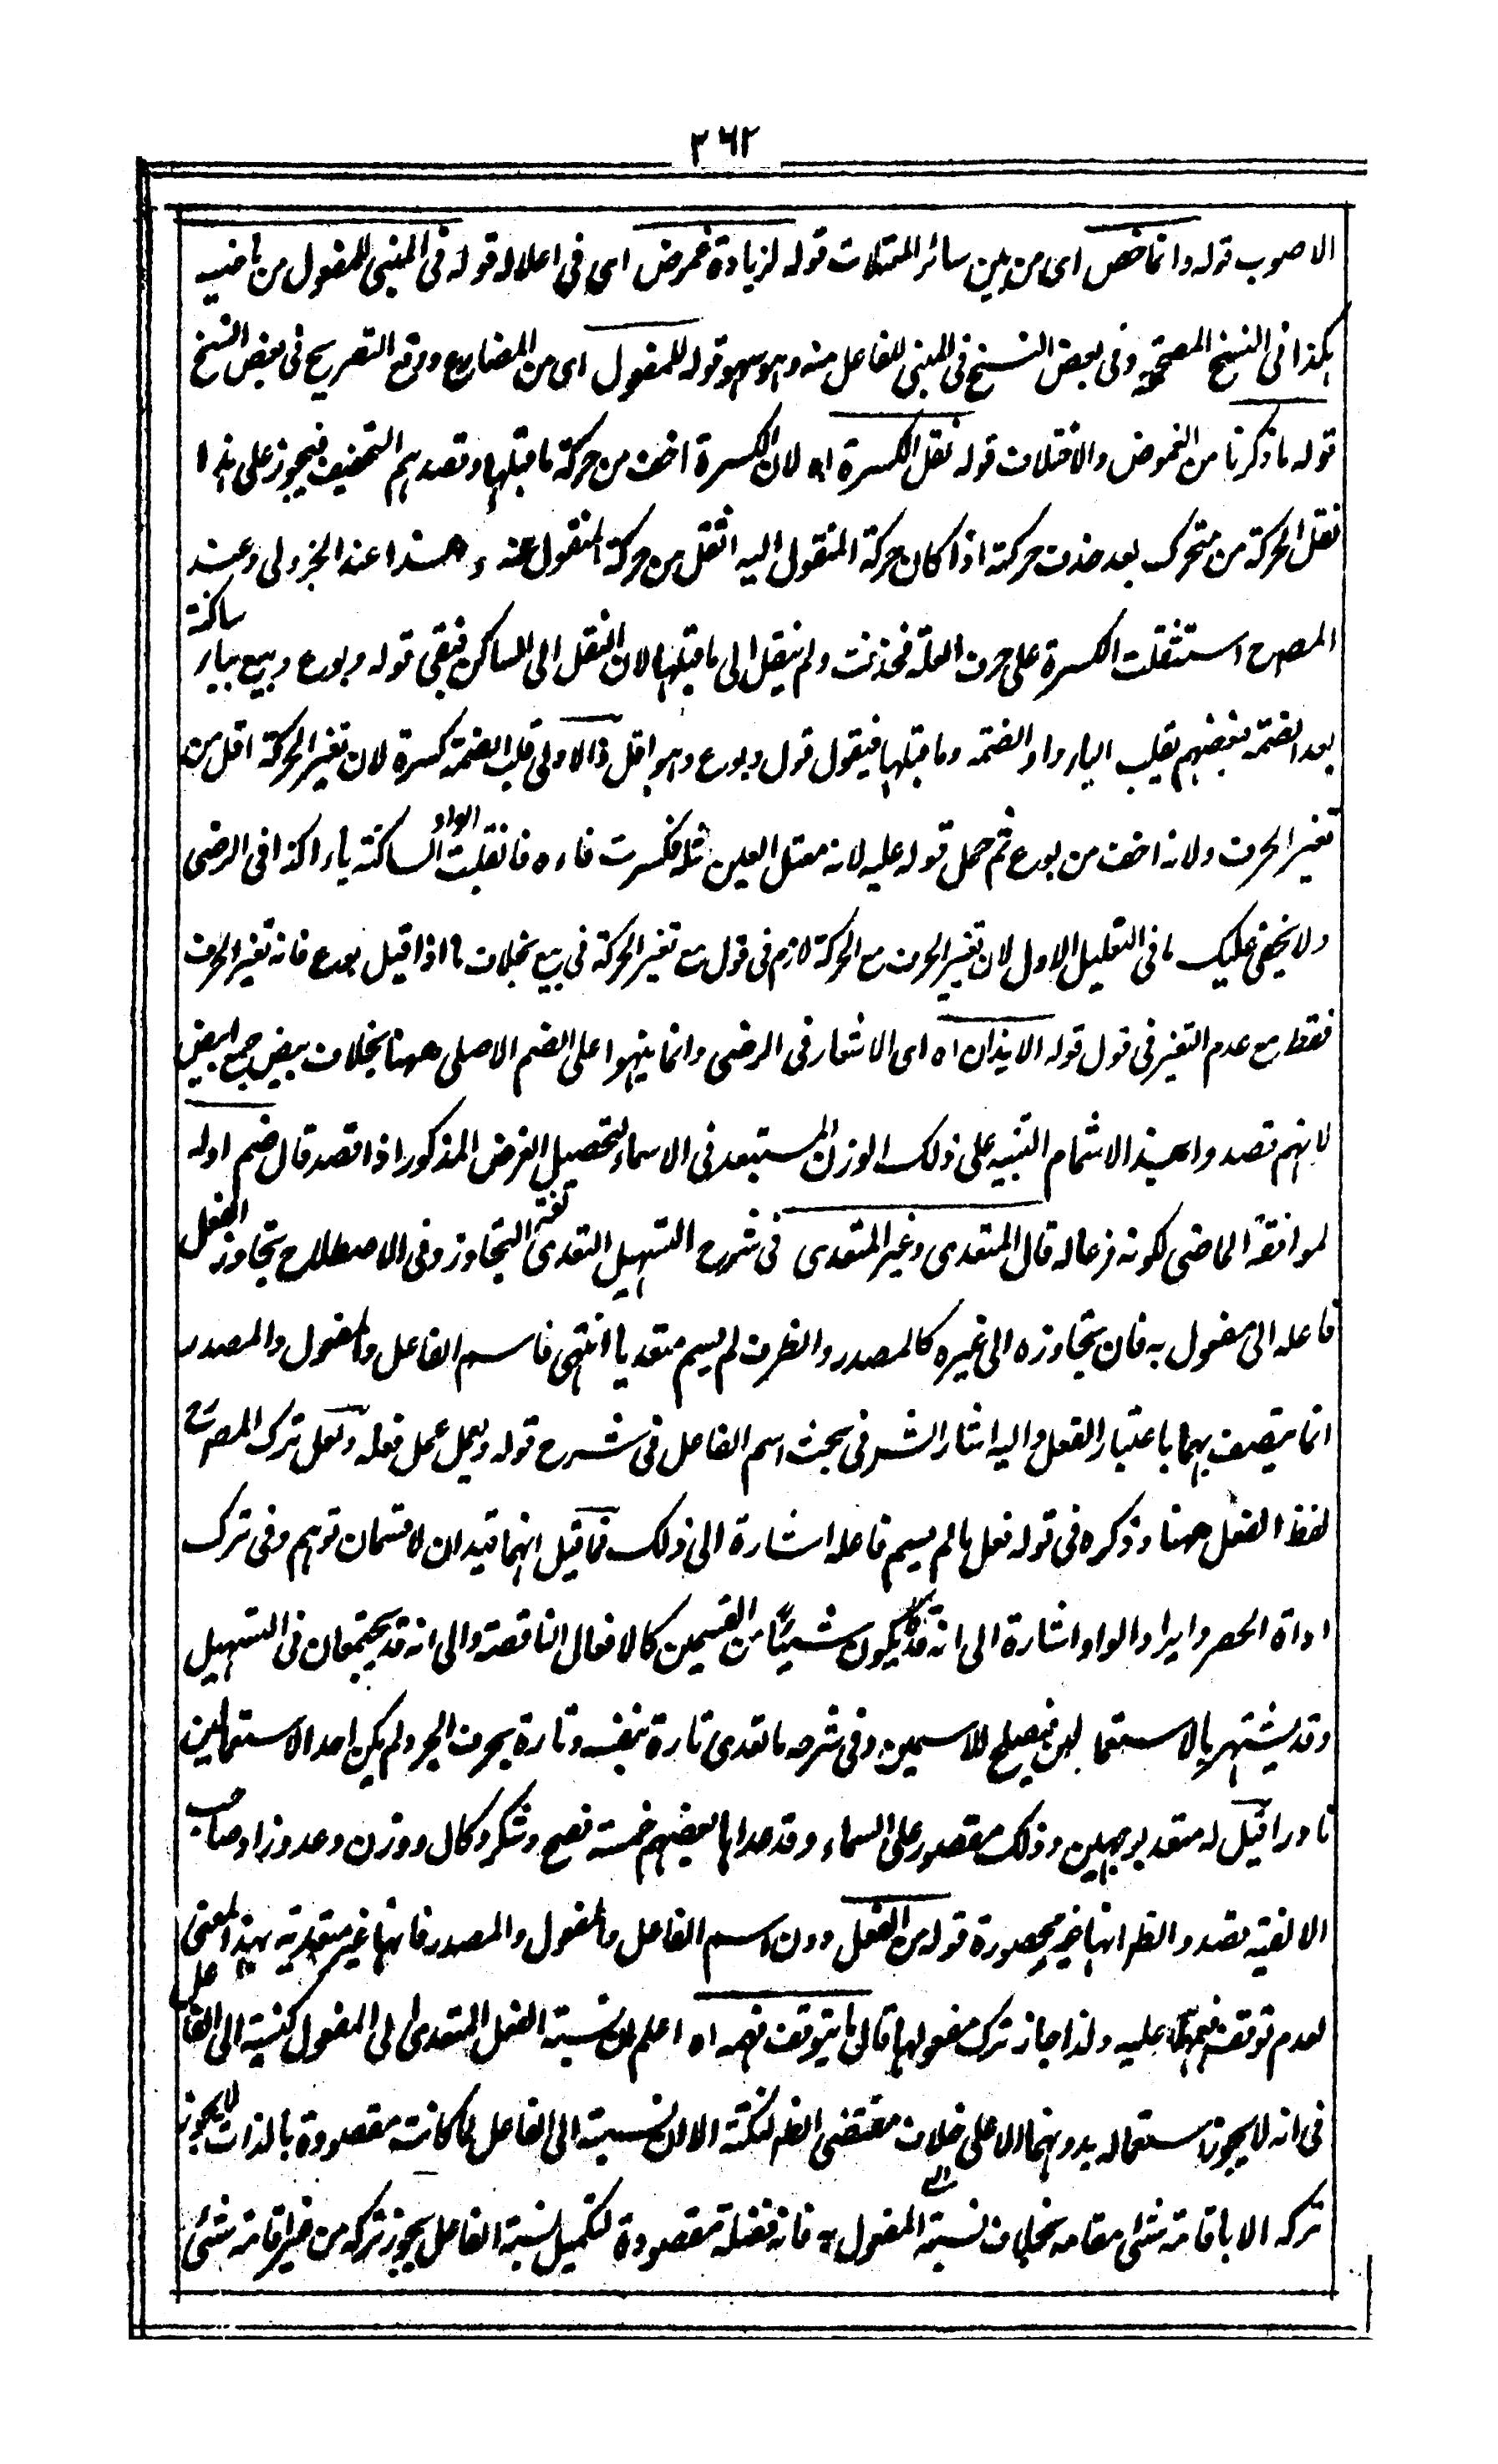 ٣٦٢
الاصوب قوله وانما خص اى من بين سائر المعتلات قوله لزيادة غموض اى فى اعلاله قوله فى المبنى للمفعول من ماضيه
هكذا فى النسخ المصححة وفى بعض النسخ فى المبنى للفاعل منه وهو سهو قوله للمفعول اى من المضارع ووقع التصريح فى بعض النسخ
قوله ما ذكرنا من الغموض والاختلاف قوله نقل الكسرة اه لان الكسرة اخف من حركة ما قبلها وقصدهم التخفيف فيجوز على هذا
نقل الحركة من متحرك بعد حذف حركته اذا كان حركة المنقول اليه اثقل من حركة المنقول عنه وهذا عند الجزولى وعند
المصرح استثقلت الكسرة على حرف العلة فحذفت ولم ينقل الى ما قبلها لان النقل الى الساكن فبقى قوله وبورع وبيع بياء ساكنة
بعد الضمة فبعضهم يقلب الياء واوا لضمة وما قبلها فيقول قول وبورع وهو اقل والاولى قلب الضمة كسرة لان تغير الحركة اقل من
تغير الحرف ولانه اخف من بورع ثم حمل قوله عليه لانه معتل العين مثله فكسرت فاءه فانقلبت الواو الساكنة ياء كذا فى الرضى
ولا يخفى عليك ما فى التعليل الاول لان تغير الحرف مع الحركة لازم فى قول مع تغير الحركة فى بيع بخلاف ما اذا قيل بورع فانه تغير الحرف
فقط مع عدم التغير فى قول قوله الايذان اه اى الاشعار فى الرضى وانما ينبهوا على الضم الاصلى ههنا بخلاف بيض جمع ابيض
لانهم قصدوا بهذا الاشمام التنبيه على ذلك الوزن المستبعد فى الاسماء لتحصيل الغرض المذكور اذا قصد قال ضم اوله
لموافقة الماضى لكونه فرعا له قال المتعدى وغير المتعدى فى شرح التسهيل التعدى لغة التجاوز وفى الاصطلاح تجاوز الفعل
فاعله الى مفعول به فان تجاوزه الى غيره كالمصدر والظرف لم يسم متعديا انتهى فاسم الفاعل والمفعول والمصدر
انما يتصف بهما باعتبار الفعل واليه اشار الشر فى بحث اسم الفاعل فى شرح قوله ويعمل عمل فعله ولعل ترك المصرح
لفظ الفعل ههنا وذكره فى قوله فعل ما لم يسم فاعله اشارة الى ذلك فما قيل انهما قيدان لا قسمان توهم وفى ترك
اداة الحصر وايراد الواو اشارة الى انه قد لا يكون شيئا من القسمين كالافعال الناقصة والى انه قد يجتمعان فى التسهيل
وقد يشتهر بالاستعمالين فيصلح للاسمين وفى شرحه ما تعدى تارة بنفسه وتارة بحرف الجر ولم يكن احد الاستعمالين
نادرا قيل له متعد بوجهين وذلك مقصور على السماء وقد عداها بعضهم خمسة نصح وشكر وكال ووزن وعد وزاد صاحب
الالفية قصد والظ انها غير محصورة قوله من الفعل دون اسم الفاعل والمفعول والمصدر فانها غير متعدية بهذا المعنى
لعدم توقف فهمها عليه ولذا جاز ترك مفعولها قال ما يتوقف فهمه اه اعلم ان نسبة الفعل المتعدى الى المفعول كنسبته الى الفاعل
فى انه لا يجوز استعماله بدونهما الا على خلاف مقتضى الظ لنكتة الا ان نسبته الى الفاعل لما كانت مقصودة بالذات لا يجوز
تركه الا باقامة شئ مقامه بخلاف نسبته الى المفعول به فانه فضلة مقصودة لتكميل نسبة الفاعل يجوز تركه من غير اقامة شئ